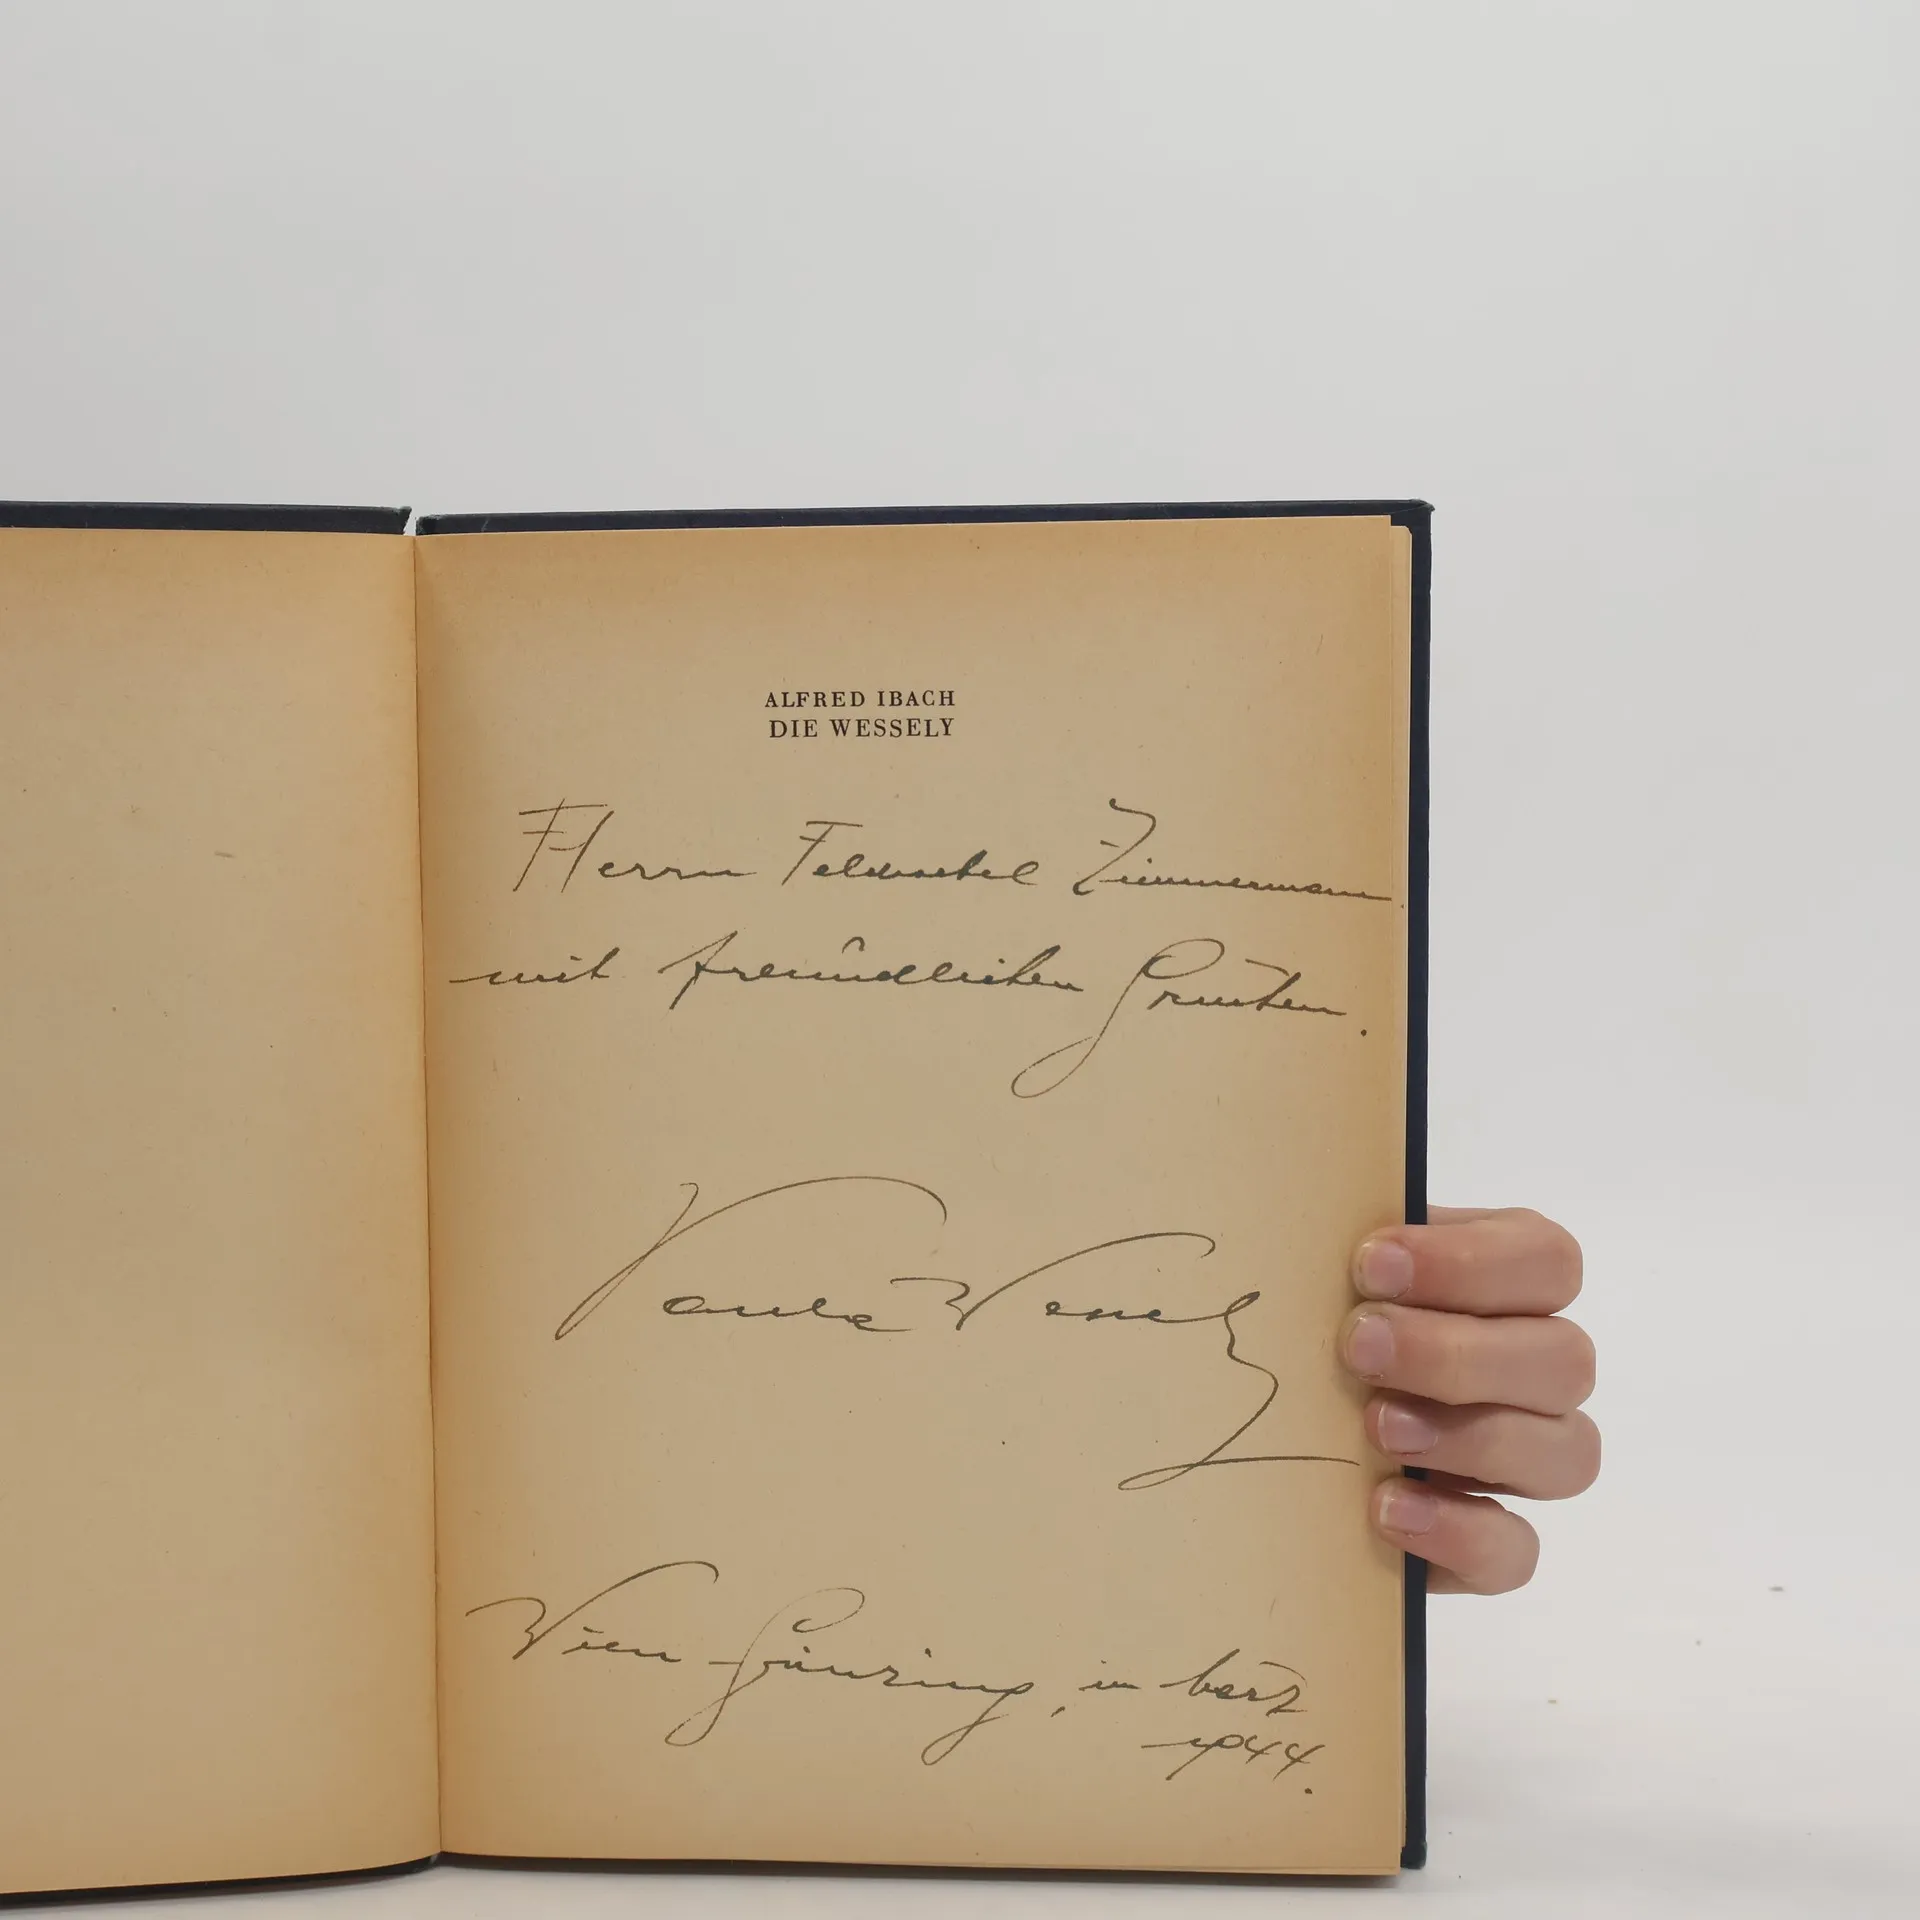 ALFRED IBACH
DIE WESSELY
Herrn Feldwebel Zimmermann
mit freundlichen Grüßen.
Paula Wessely
Wien Grinzing, im März
1944.